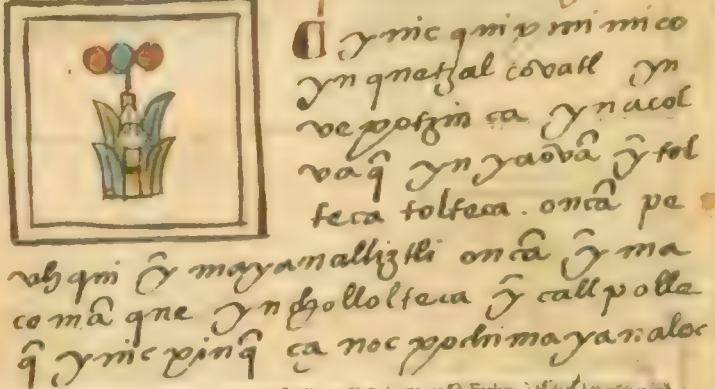 ynic quiv mimico
yn quetzal covatl yn
ve potzin ca yn acol
vaq̃ yn yaovã ỹ tol
teca tolteca. oncã pe
vh qui ỹ mayanaliztli oncã ỹ ma
ce mã que yn chollolteca ỹ callpolle
q̃ ynic pinq̃ ça noc pochimayanaloc